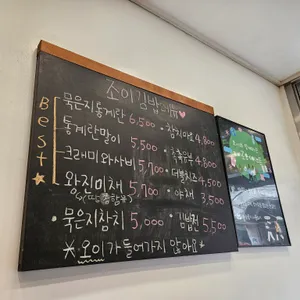 조이김밥
Best
묵은지통계란 6,500 · 참치마요 4,800
통계란말이 5,500 · 4,800
크래미와사비 5,700 · 더블치즈 4,500
와진미채 5,700 · 야채 3,500
· 묵은지참치 5,000 · 김밥전 5,500
※오이가 들어가지 않아요※